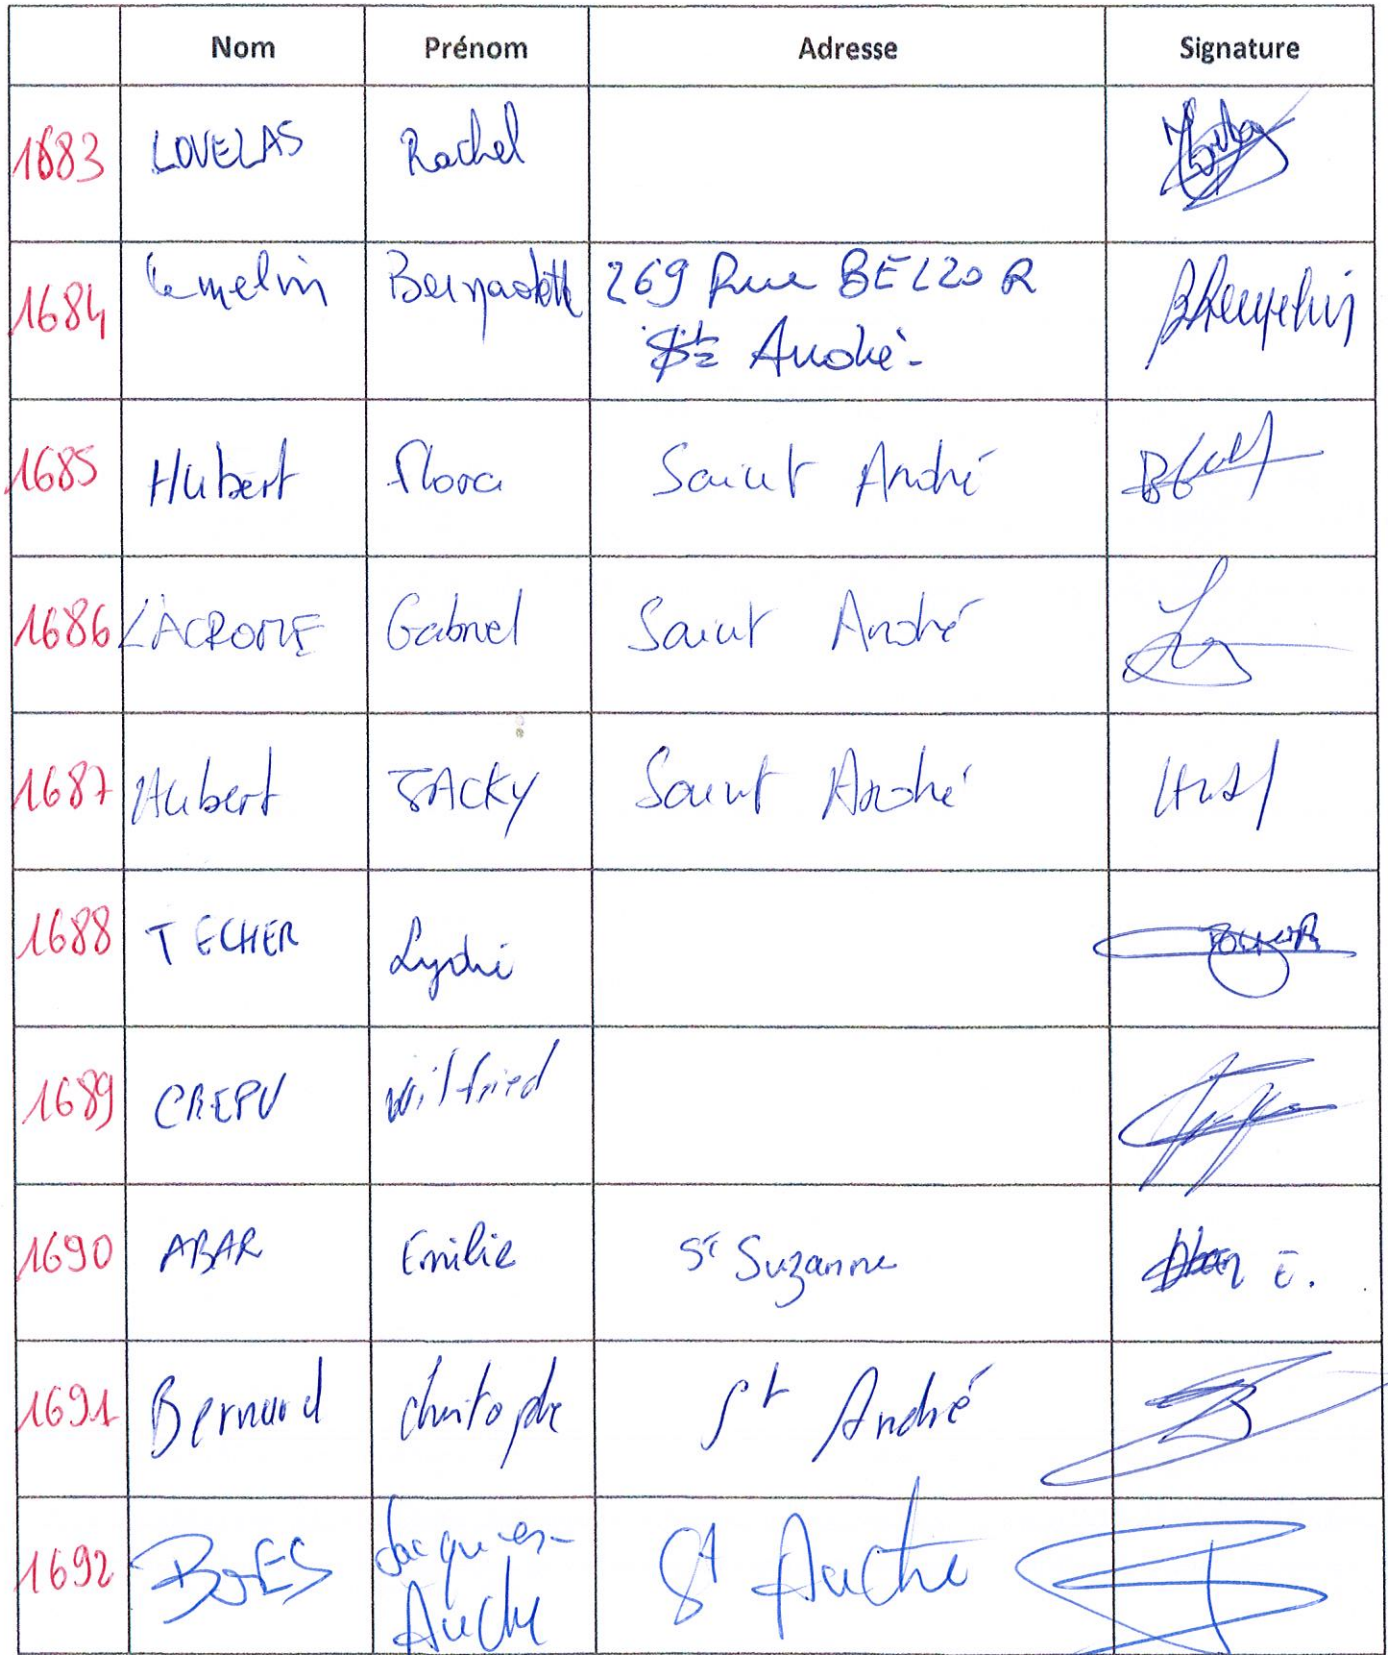 Nom Prénom Adresse Signature
1683 LOVELAS Rachel
1684 Lemelin Bernadette 269 Rue BELZOR
St André-
1685 Hubert Flora Saint André
1686 LACROME Gabriel Saint André
1687 Hubert JACKY Saint André
1688 TECHER Lydie
1689 CREPU Wilfried
1690 ABAR Emilie Ste Suzanne
1691 Bernard Christophe St André
1692 Jacques-
André St André